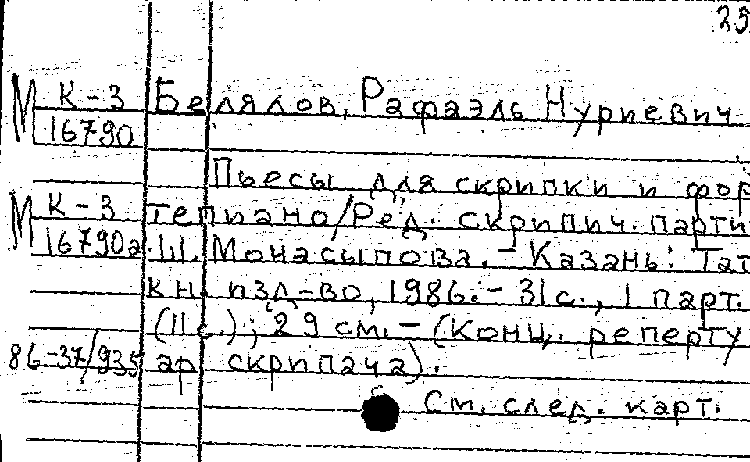 29
М К-3 Белялов, Рафаэль Нуриевич
16790
Пьесы для скрипки и фор
М К-3 тепиано/Ред. скрипич. парти
16790а Ш. Монасыпова. - Казань: Тат
кн. изд-во, 1986. - 31 с., 1 парт.
(11 с.); 29 см. - (Конц. реперту
86-37/935 ар скрипача).
См. след. карт.